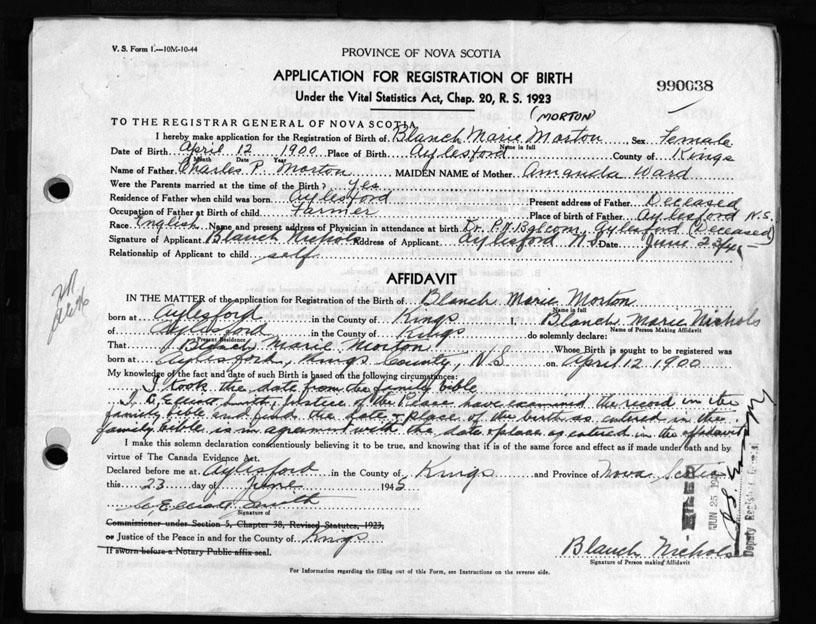 V. S. Form 1.—10M-10-44
PROVINCE OF NOVA SCOTIA
APPLICATION FOR REGISTRATION OF BIRTH
990038
Under the Vital Statistics Act, Chap. 20, R. S. 1923
(MORTON)
TO THE REGISTRAR GENERAL OF NOVA SCOTIA
I hereby make application for the Registration of Birth of Blanch Marie Morton Sex Female
Name in full
Date of Birth April 12 1900 Place of Birth Aylesford County of Kings
Month Date Year
Name of Father Charles P. Morton MAIDEN NAME of Mother Amanda Ward
Were the Parents married at the time of the Birth? Yes
Residence of Father when child was born Aylesford Present address of Father Deceased
Occupation of Father at Birth of child Farmer Place of birth of Father Aylesford N.S.
Race English Name and present address of Physician in attendance at birth Dr. P. N. Balcom, Aylesford (Deceased)
Signature of Applicant Blanch Nichols Address of Applicant Aylesford N.S. Date June 23/45
Relationship of Applicant to child self
AFFIDAVIT
IN THE MATTER of the application for Registration of the Birth of Blanch Marie Morton
Name in full
born at Aylesford in the County of Kings I, Blanch Marie Nichols
Name of Person Making Affidavit
of Aylesford in the County of Kings do solemnly declare:
Present Residence
That Blanch Marie Morton Whose Birth is sought to be registered was
born at Aylesford, Kings County, N.S on April 12 1900
My knowledge of the fact and date of such Birth is Based on the following circumstances:
I took the date from the family bible
I, C. Elliott Smith, Justice of the Peace have examined the record in the
family bible and find the date & place of the birth as entered in the
family bible is in agreement with the date & place as entered in the affidavit
I make this solemn declaration conscientiously believing it to be true, and knowing that if is of the same force and effect as if made under oath and by
virtue of The Canada Evidence Act.
Declared before me at Aylesford in the County of Kings and Province of Nova Scotia
this 23 day of June 1945
C. Elliott Smith
Signature of
Commissioner under Section 5, Chapter 38, Revised Statutes, 1923,
or Justice of the Peace in and for the County of Kings
If sworn before a Notary Public affix seal.
Blanch Nichols
Signature of Person making Affidavit
For Information regarding the filling out of this Form, see Instructions on the reverse side.
FILED
JUN 25 194
Deputy Registrar General